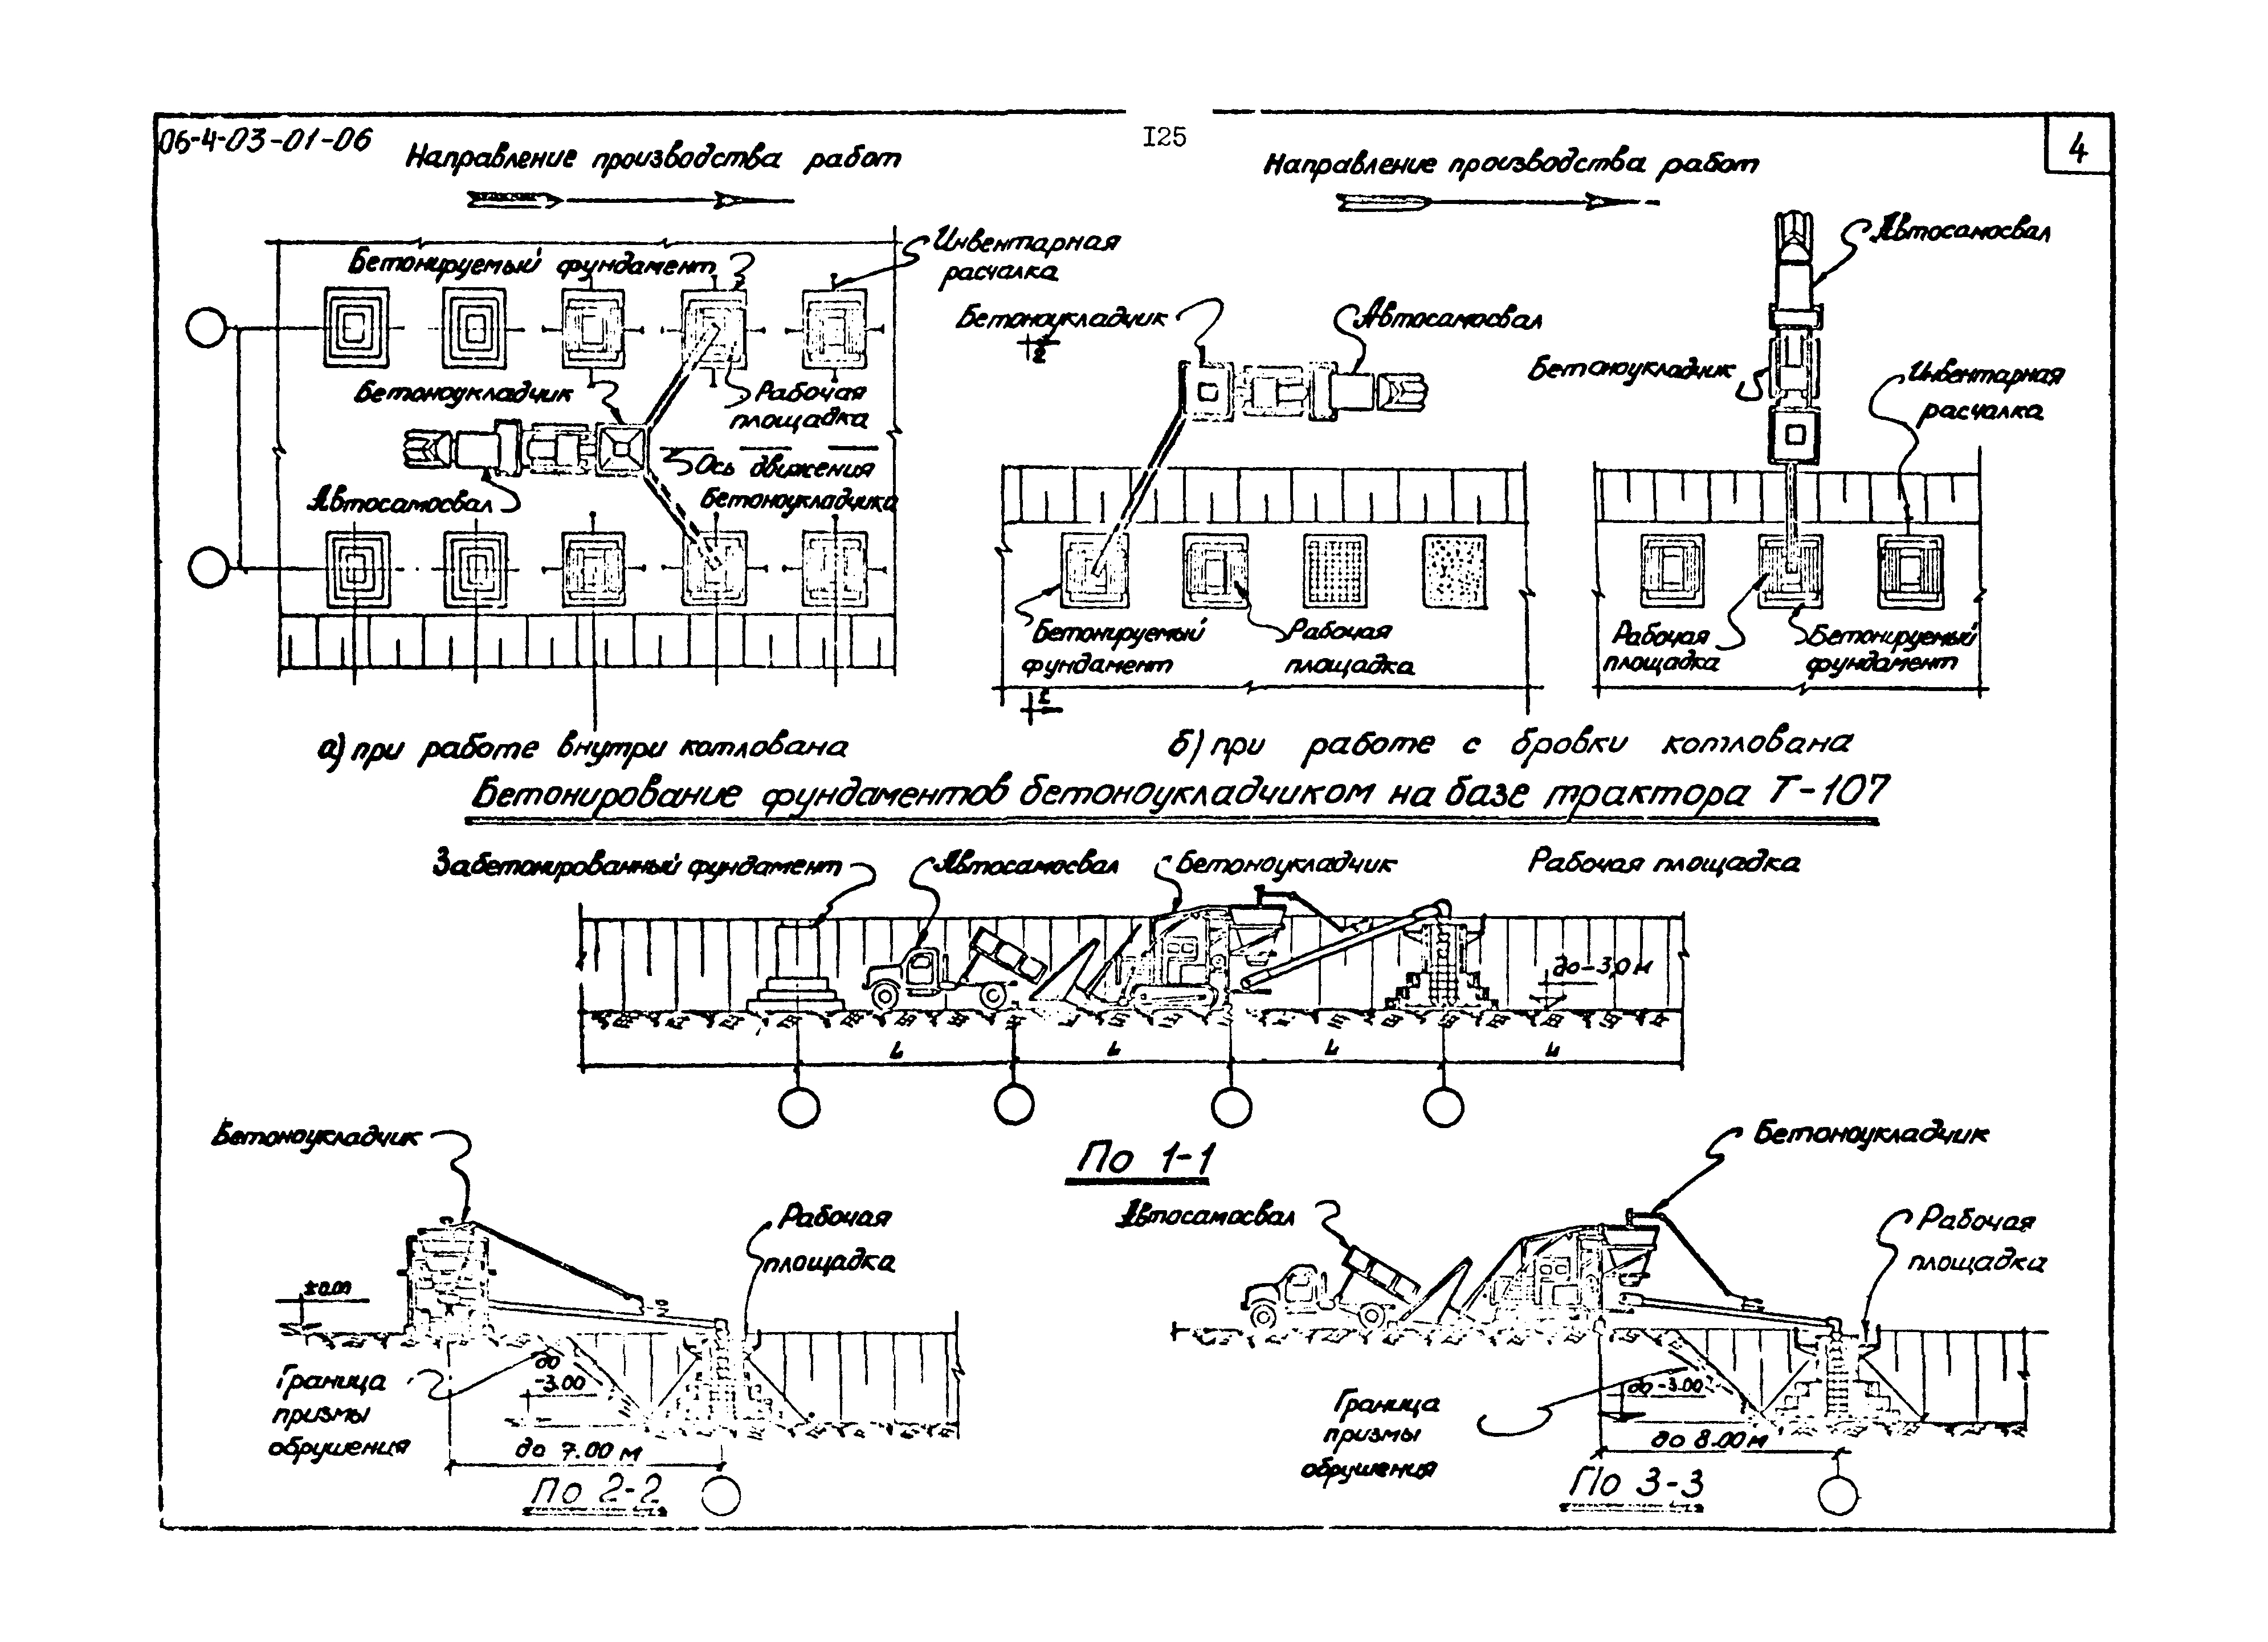 06-4-03-01-06
I25
4
Направление производства работ
Направление производства работ
Бетонируемый фундамент
Инвентарная
расчалка
Бетоноукладчик
Рабочая
площадка
Ось движения
бетоноукладчика
Автосамосвал
Бетоноукладчик
Автосамосвал
2
Бетонируемый
фундамент
Рабочая
площадка
2
Автосамосвал
Бетоноукладчик
Инвентарная
расчалка
Рабочая
площадка
Бетонируемый
фундамент
а) при работе внутри котлована
б) при работе с бровки котлована
Бетонирование фундаментов бетоноукладчиком на базе трактора Т-107
Забетонированный фундамент
Автосамосвал
Бетоноукладчик
Рабочая площадка
до -3,0 м
L L L L
По 1-1
Бетоноукладчик
Рабочая
площадка
±0.00
Граница
призмы
обрушения
до
-3.00
до 7.00 м
По 2-2
Бетоноукладчик
Автосамосвал
Рабочая
площадка
Граница
призмы
обрушения
до -3.00
до 8.00 м
По 3-3